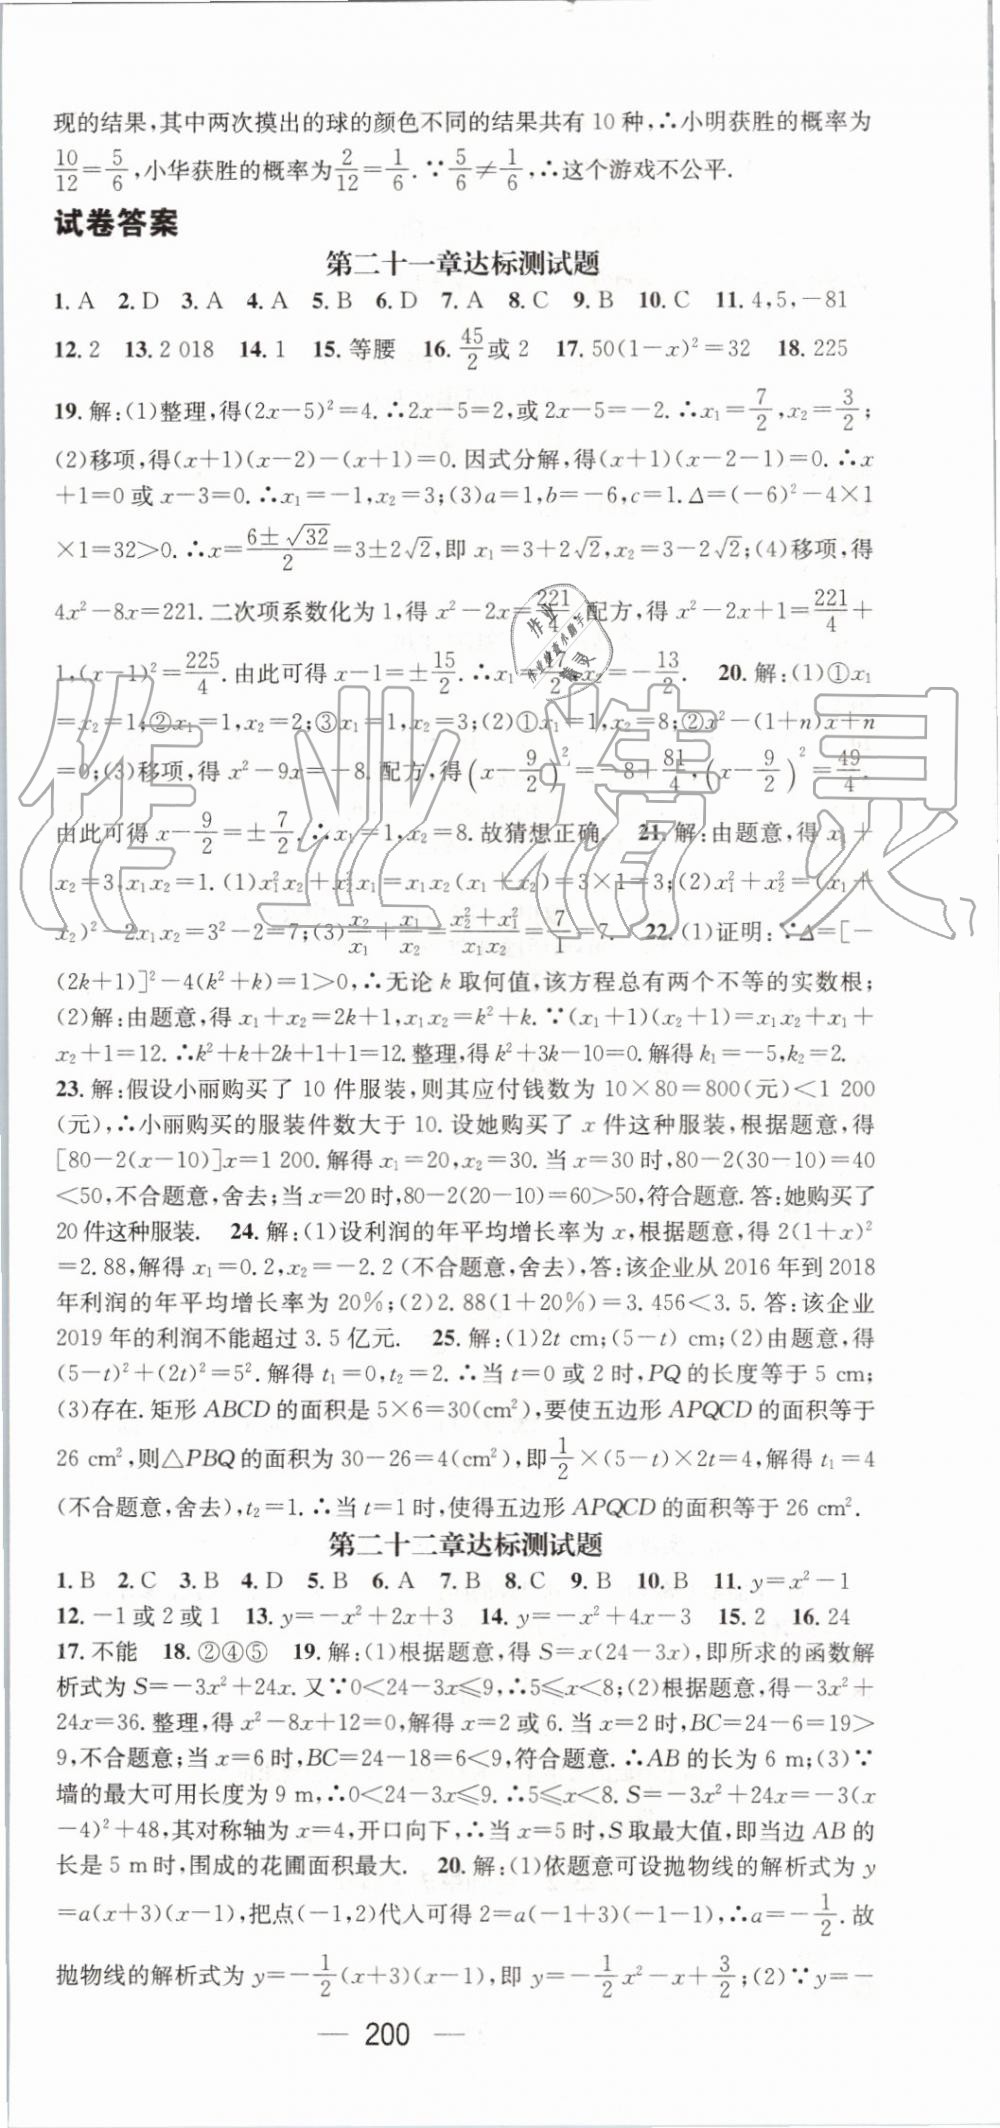 现的结果,其中两次摸出的球的颜色不同的结果共有 10 种,∴小明获胜的概率为
10/12=5/6,小华获胜的概率为2/12=1/6.∵5/6≠1/6,∴这个游戏不公平.
试卷答案
第二十一章达标测试题
1. A 2. D 3. A 4. A 5. B 6. D 7. A 8. C 9. B 10. C 11. 4,5,-81
12. 2 13. 2 018 14. 1 15. 等腰 16. 45/2或 2 17. 50(1-x)²=32 18. 225
19. 解:(1)整理,得(2x-5)²=4.∴2x-5=2,或2x-5=-2.∴x₁=7/2,x₂=3/2;
(2)移项,得(x+1)(x-2)-(x+1)=0.因式分解,得(x+1)(x-2-1)=0.∴x
+1=0 或 x-3=0.∴x₁=-1,x₂=3;(3)a=1,b=-6,c=1.Δ=(-6)²-4×1
×1=32>0.∴x=(6±√32)/2=3±2√2,即 x₁=3+2√2,x₂=3-2√2;(4)移项,得
4x²-8x=221.二次项系数化为 1,得 x²-2x=221/4.配方,得 x²-2x+1=221/4+
1,(x-1)²=225/4.由此可得 x-1=±15/2.∴x₁=17/2,x₂=-13/2. 20. 解:(1)①x₁
=x₂=1;②x₁=1,x₂=2;③x₁=1,x₂=3;(2)①x₁=1,x₂=8;②x²-(1+n)x+n
=0;(3)移项,得 x²-9x=-8.配方,得(x-9/2)²=-8+81/4,(x-9/2)²=49/4.
由此可得 x-9/2=±7/2.∴x₁=1,x₂=8.故猜想正确. 21. 解:由题意,得 x₁+
x₂=3,x₁x₂=1.(1)x₁²x₂+x₂²x₁=x₁x₂(x₁+x₂)=3×1=3;(2)x₁²+x₂²=(x₁+
x₂)²-2x₁x₂=3²-2=7;(3)x₂/x₁+x₁/x₂=(x₂²+x₁²)/x₁x₂=7/1=7. 22. (1)证明:∵Δ=[-
(2k+1)]²-4(k²+k)=1>0,∴无论 k 取何值,该方程总有两个不等的实数根;
(2)解:由题意,得 x₁+x₂=2k+1,x₁x₂=k²+k.∵(x₁+1)(x₂+1)=x₁x₂+x₁+
x₂+1=12.∴k²+k+2k+1+1=12.整理,得 k²+3k-10=0.解得 k₁=-5,k₂=2.
23. 解:假设小丽购买了 10 件服装,则其应付钱数为 10×80=800(元)<1 200
(元),∴小丽购买的服装件数大于 10.设她购买了 x 件这种服装,根据题意,得
[80-2(x-10)]x=1 200.解得 x₁=20,x₂=30.当 x=30 时,80-2(30-10)=40
<50,不合题意,舍去;当 x=20 时,80-2(20-10)=60>50,符合题意.答:她购买了
20 件这种服装. 24. 解:(1)设利润的年平均增长率为 x,根据题意,得 2(1+x)²
=2.88,解得 x₁=0.2,x₂=-2.2(不合题意,舍去),答:该企业从 2016 年到 2018
年利润的年平均增长率为 20%;(2)2.88(1+20%)=3.456<3.5.答:该企业
2019 年的利润不能超过 3.5 亿元. 25. 解:(1)2t cm;(5-t) cm;(2)由题意,得
(5-t)²+(2t)²=5².解得 t₁=0,t₂=2.∴当 t=0 或 2 时,PQ 的长度等于 5 cm;
(3)存在.矩形 ABCD 的面积是 5×6=30(cm²),要使五边形 APQCD 的面积等于
26 cm²,则△PBQ 的面积为 30-26=4(cm²),即1/2×(5-t)×2t=4,解得 t₁=4
(不合题意,舍去),t₂=1.∴当 t=1 时,使得五边形 APQCD 的面积等于 26 cm².
第二十二章达标测试题
1. B 2. C 3. B 4. D 5. B 6. A 7. B 8. C 9. B 10. B 11. y=x²-1
12. -1 或 2 或 1 13. y=-x²+2x+3 14. y=-x²+4x-3 15. 2 16. 24
17. 不能 18. ②④⑤ 19. 解:(1)根据题意,得 S=x(24-3x),即所求的函数解
析式为 S=-3x²+24x.又∵0<24-3x≤9,∴5≤x<8;(2)根据题意,得-3x²+
24x=36.整理,得 x²-8x+12=0,解得 x=2 或 6.当 x=2 时,BC=24-6=19>
9,不合题意;当 x=6 时,BC=24-18=6<9,符合题意.∴AB 的长为 6 m;(3)∵
墙的最大可用长度为 9 m,∴0<24-3x≤9.∴5≤x<8.S=-3x²+24x=-3(x
-4)²+48,其对称轴为 x=4,开口向下,∴当 x=5 时,S 取最大值,即当边 AB 的
长是 5 m 时,围成的花圃面积最大. 20. 解:(1)依题意可设抛物线的解析式为 y
=a(x+3)(x-1),把点(-1,2)代入可得 2=a(-1+3)(-1-1),∴a=-1/2.故
抛物线的解析式为 y=-1/2(x+3)(x-1),即 y=-1/2x²-x+3/2;(2)∵y=-
— 200 —
作业精灵